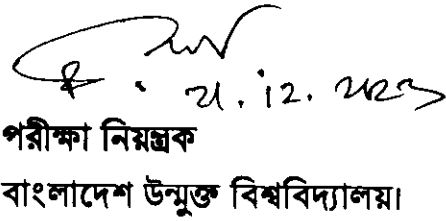 21.12.2023
পরীক্ষা নিয়ন্ত্রক
বাংলাদেশ উন্মুক্ত বিশ্ববিদ্যালয়।